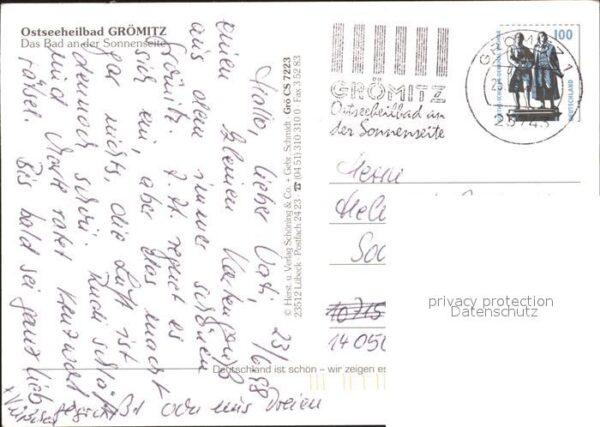 Ostseeheilbad GRÖMITZ
Das Bad an der Sonnenseite
GRÖMITZ
Ostseeheilbad an
der Sonnenseite
GRÖMITZ 1
23743
100
DEUTSCHLAND
© Herst. u. Verlag Schöning & Co. + Gebr. Schmidt · Grö CS 7223
23512 Lübeck · Postfach 24 23 · ☎ (04 51) 310 310 · Fax 3 52 83
23/6 98
Hallo, lieber Vati,
einen kleinen Kartengruß
aus dem immer schönen
Grömitz. Z. Zt. regnet es
sich ein, aber das macht
gar nichts, die Luft ist
dennoch schön. Rudi schläft
und Mark ratet Kreuzwort
rätsel.
Bis bald sei ganz lieb
gegrüßt von uns Dreien
+ Küßchen
Herrn
10715
14050
privacy protection
Datenschutz
Deutschland ist schön – wir zeigen es